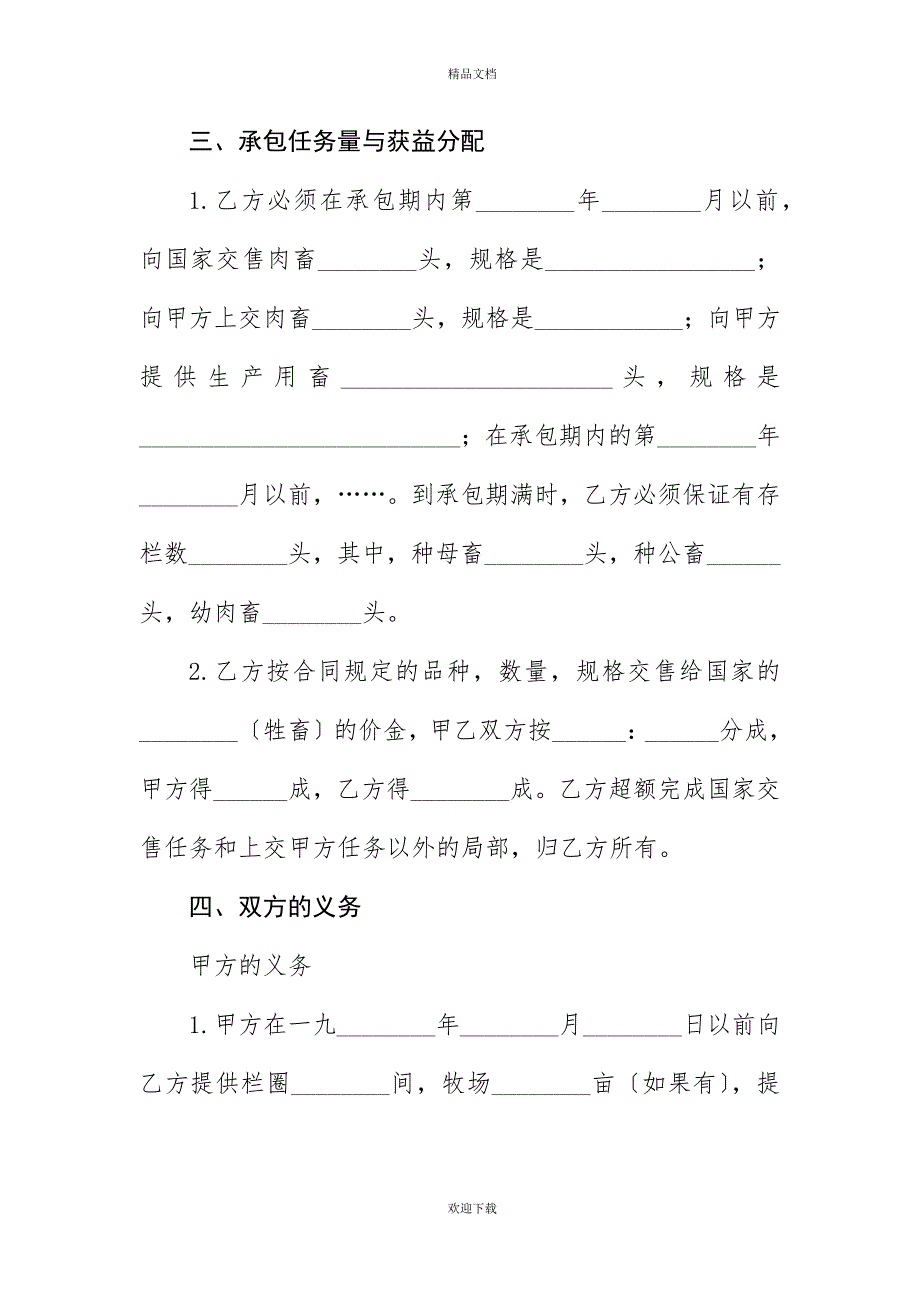 精品文档
三、承包任务量与获益分配
1.乙方必须在承包期内第________年________月以前，
向国家交售肉畜________头，规格是_________________；
向甲方上交肉畜________头，规格是____________；向甲方
提供生产用畜______________________头，规格是
__________________________；在承包期内的第________年
________月以前，……。到承包期满时，乙方必须保证有存
栏数________头，其中，种母畜________头，种公畜______
头，幼肉畜________头。
2.乙方按合同规定的品种，数量，规格交售给国家的
________〔牲畜〕的价金，甲乙双方按______：______分成，
甲方得______成，乙方得________成。乙方超额完成国家交
售任务和上交甲方任务以外的局部，归乙方所有。
四、双方的义务
甲方的义务
1.甲方在一九________年________月________日以前向
乙方提供栏圈________间，牧场________亩〔如果有〕，提
欢迎下载